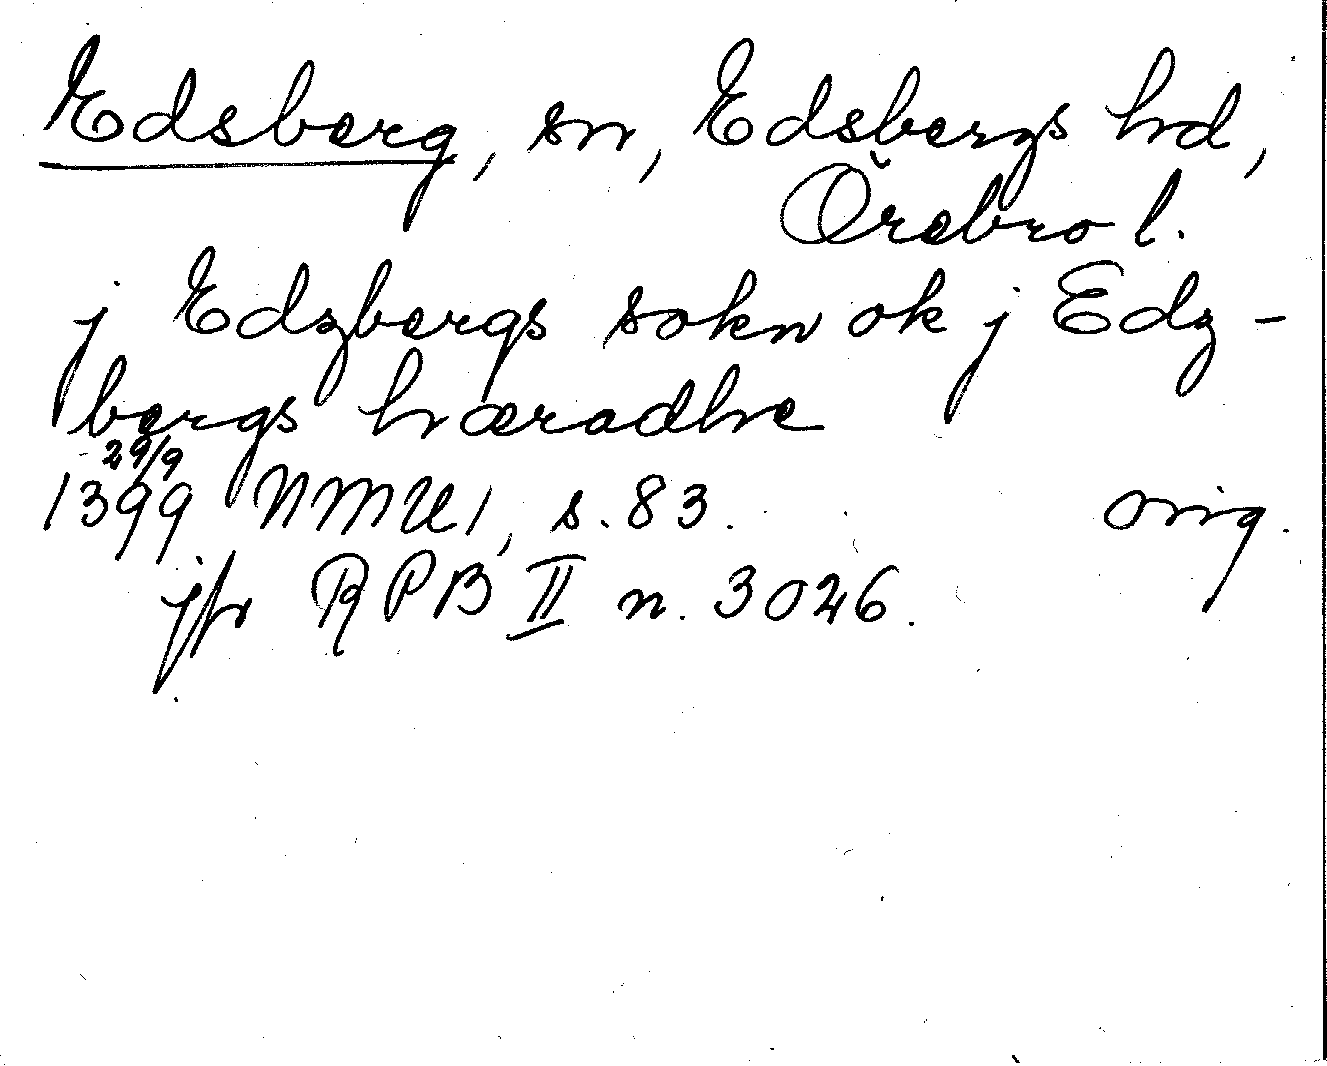 Edsberg, sn, Edsbergs hd,
Örebro l.
j Edzbergs sokn ok j Edz-
bergs hæradhe
29/9
1399 NMU 1, s. 83. orig.
jfr RPB II n. 3026.